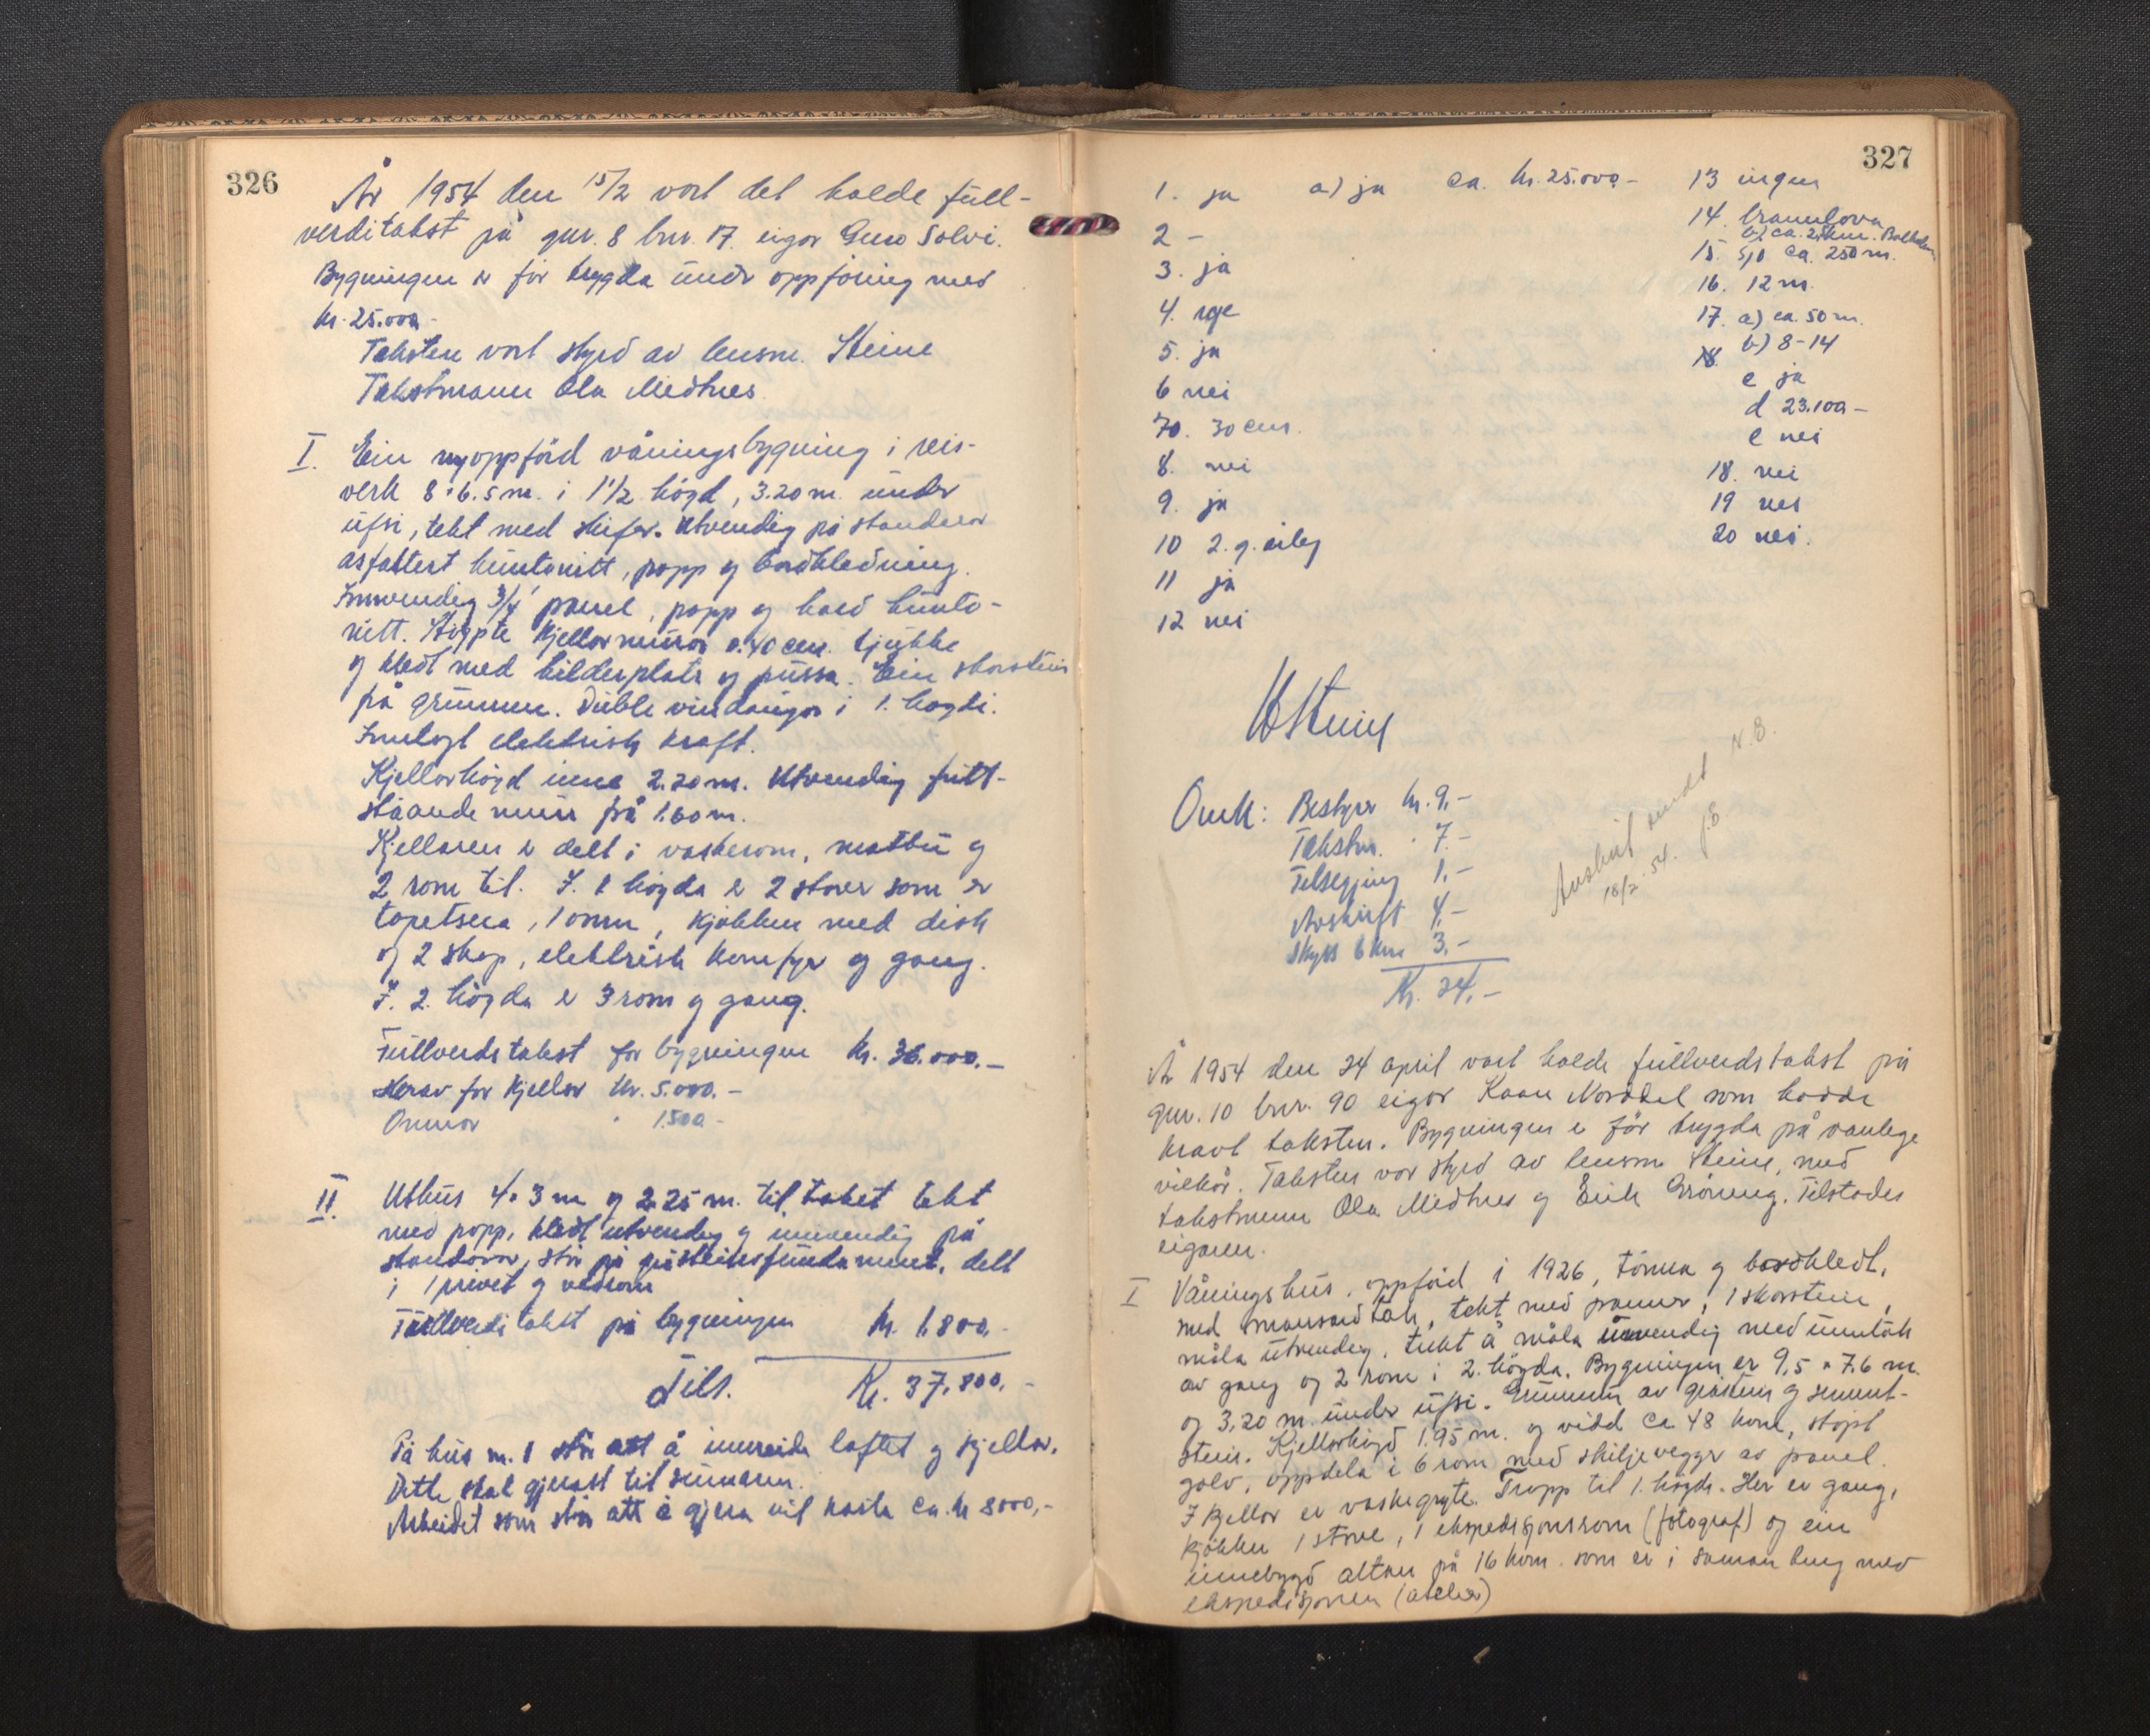 326
År 1954 den 15/2 vart det halde full-
verditakst på gnr. 8 bnr. 17. eigar Guro Solvi.
Bygningen er før trygda under oppføring med
kr. 25.000.-
Taksten vart styrd av lensm. Steine
Takstmann Ola Medhus.
I. Ein nyoppførd våningsbygning i reis-
verk 8 × 6.5 m. i 1 1/2 høgd, 3.20 m. under
ufsi, tekt med skifer. Utvendig på standarar
asfaltert huntonitt, papp og bordkledning.
Innvendig 3/4" panel, papp og hard hunto-
nitt. Støypte kjellarmurar a. 40 cm. tjukke
og kledt med bilderplatr og pussa. Ein skorstein
på grunnen. Duble vindaugo i 1. høgdi.
Innlagt elektrisk kraft.
Kjellarhøgd inne 2.20 m. Utvendig fritt-
ståande mur på 1.60 m.
Kjellaren er delt i vaskerom, matbu og
2 rom til. I. 1 høgda er 2 stover som er
tapetsera, 1 omn, kjøkken med disk
og 2 skap, elektrisk komfyr og gang.
I. 2. høgda er 3 rom og gang.
Fullverdstakst for bygningen kr. 36.000.-
Herav for kjellar kr. 5.000.-
Omnar " 1.500.-
II. Uthus 4 × 3 m og 2.25 m. til taket tekt
med papp, kledt utvendig og innvendig på
standarar, står på gråsteinsfundament, delt
i 1 privet og vedrom
Fullverditakst på bygningen kr. 1.800.-
Tils. Kr. 37.800.-
På hus nr. 1 står att å innreida loftet og kjellar.
Dette skal gjerast til sumaren.
Arbeidet som står att å gjera vil kosta ca. kr 8000.-
327
1. ja a) ja ca. kr. 25.000-
2 -
3. ja
4. nye
5. ja
6 nei
7a. 30 cm.
8. nei
9. ja
10 2. g. årleg
11 ja
12 nei
13 ingen
14.
b) ca. 2 km.
15. sjø ca. 250 m.
16. 12 m.
17. a) ca. 50 m.
b) 8-14
c ja
d 23.100-
e nei
18. nei
19 nei
20 nei.
Steine
Omk: Bestyrer kr. 9.-
Takstm. " 7.-
Tilsegjing 1.-
Avskrift 4.-
Skyss 6 km 3.-
Kr. 24.-
Avskrift sendt N.B.
18/2. 54.
År 1954 den 24 april vart halde fullverdstakst på
gnr. 10 bnr. 90 eigar Kaare Norddal som hadde
kravt taksten. Bygningen er før trygda på vanlege
vilkår. Taksten var styrd av lensm. Steine, med
takstmenn Ola Medhus og Eirik Grøneng. Tilstades
eigaren.
I Våningshus, oppførd i 1926, tømra og bordkledt,
med mansardtak, tekt med panner, 1 skorstein,
måla utvendig, tekt å måla innvendig med unntak
av gang og 2 rom i 2. høgda. Bygningen er 9,5 × 7,6 m.
og 3,20 m. under ufsi. Grunnen av gråstein og sement-
stein. Kjellarhøgd 1.95 m. og vidd ca 48 kvm, støpt
golv, oppdela i 6 rom med skiljevegger av panel.
I kjellar er vaskegryte. Tropp til 1. høgda. Her er gang,
kjøkken 1 stove, 1 ekspedisjonsrom (fotograf) og ein
innebygd altan på 16 kvm. som er i saman heng med
ekspedisjonen (atelier)